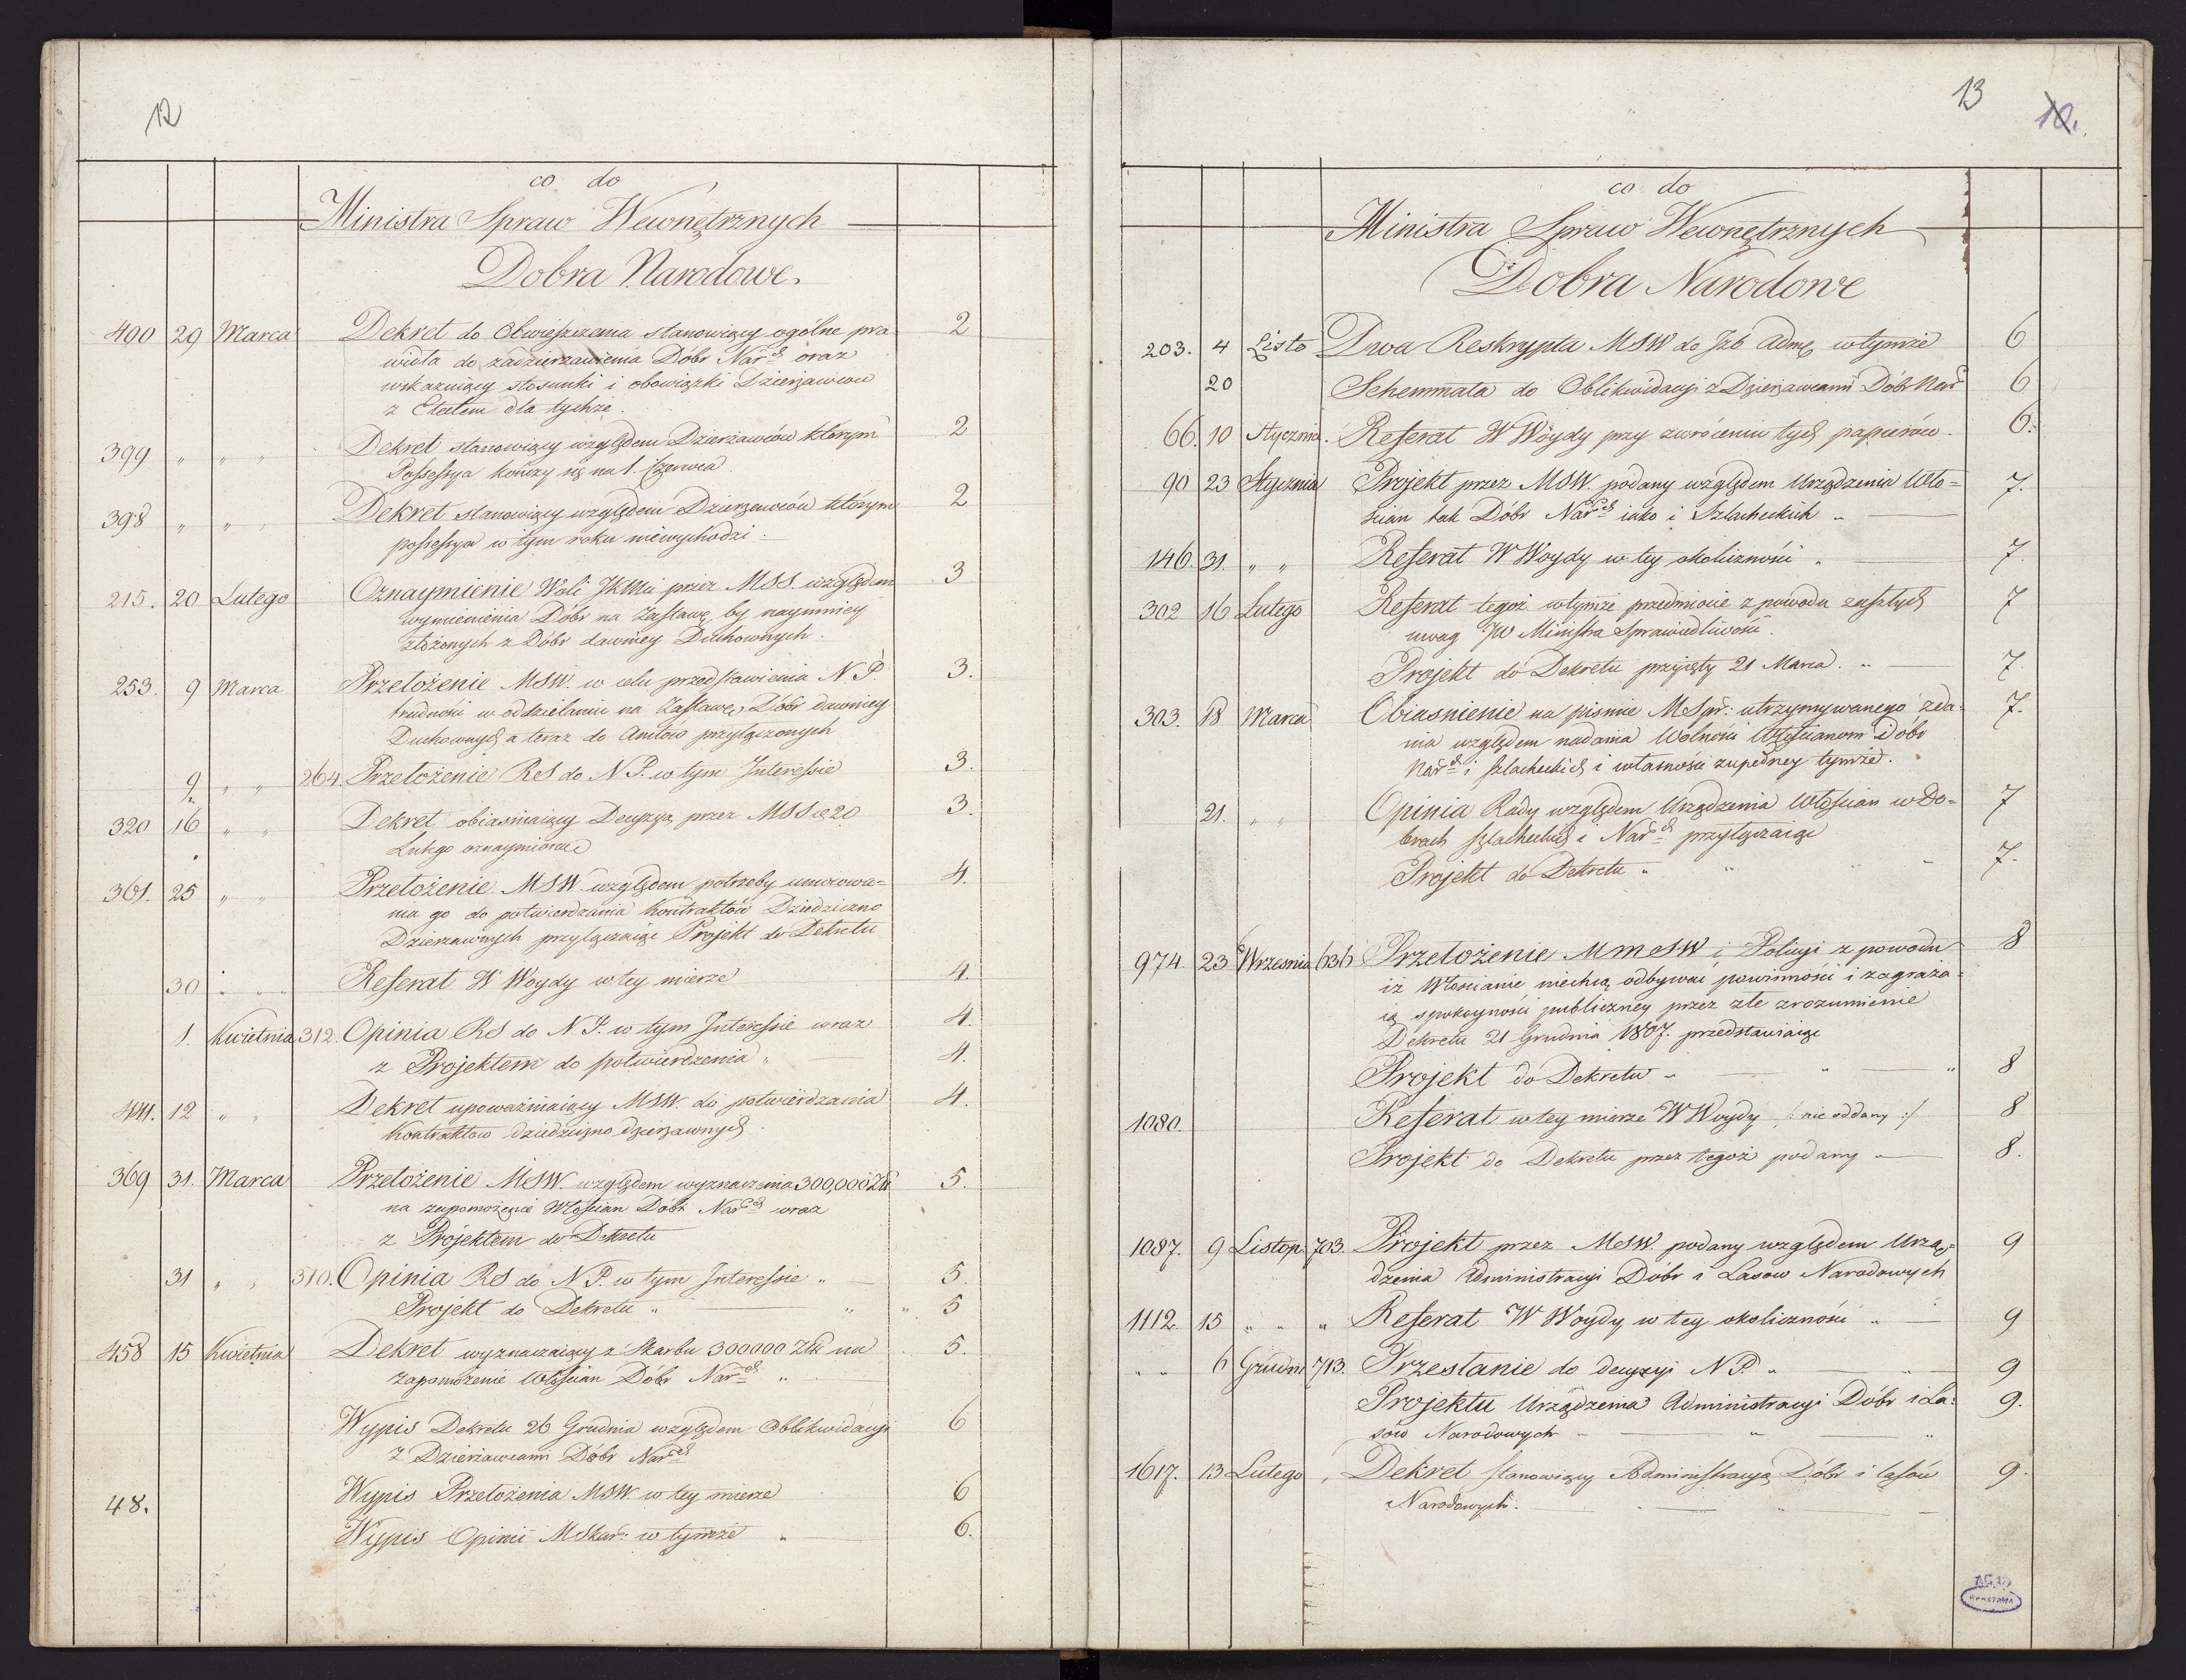 12
co do
Ministra Spraw Wewnętrznych
Dobra Narodowe.
400 29 Marca Dekret do Obwieszczenia stanowiący ogólne pra- 2
widła do zadzierzawienia Dóbr Nar<sup>ch</sup> oraz
wskazuiący stosunki i obowiązki Dzierżawców
z Etatem dla tychże.
399 " " " Dekret stanowiący względem Dzierżawców którym 2
Possessya kończy się na 1. Czerwca.
398 " " " Dekret stanowiący względem Dzierżawców którym 2
possessya w tym roku niewychodzi.
215. 20 Lutego Oznaymienie Woli JKMci przez MSS. względem 3
wymienienia Dóbr na Zastawę by naymniey
złożonych z Dóbr dawniey Duchownych.
253. 9 Marca Przełożenie MSW. w celu przedstawienia N.P. 3.
trudności w oddzielaniu na Zastawę Dóbr dawniey
Duchownych a teraz do Amtów przyłączonych
9 " " 264. Przełożenie RS do N.P. w tym Interessie 3.
320 16 " " Dekret obiasniaiący Decyzyą przez MSS 20 3.
Lutego oznaymioną
361. 25 " " Przełożenie MSW. względem potrzeby umocowa= 4.
nia go do potwierdzania Kontraktów Dziedziczno
Dzierzawnych przyłączaiąc Projekt do Dekretu
30 " " Referat W Woydy w tey mierze 4.
1. Kwietnia 312. Opinia RS do N.P. w tym Interessie wraz 4.
z Projektem do potwierdzenia " 4.
441. 12 " " Dekret upoważniaiący MSW. do potwierdzania 4.
Kontraktów dziedziczno dzierżawnych.
369 31. Marca Przełożenie MSW. względem wyznaczenia 300,000 Złł 5.
na zapomożenie Włościan Dóbr Nar<sup>ch</sup> wraz
z Projektem do Dekretu
31 " " 310. Opinia RS do N.P. w tym Interessie " 5.
Projekt do Dekretu " " " 5
458 15 Kwietnia Dekret wyznaczaiący z Skarbu 300000 Złł na 5.
zapomożenie Włościan Dóbr Nar<sup>ch</sup> "
Wypis Dekretu 26 Grudnia względem Oblikwidacyi 6
z Dzierżawcami Dóbr Nar<sup>ch</sup>
48. Wypis Przełożenia MSW. w tey mierze 6
Wypis Opinii MSkar: w tymże " 6.
13
10.
co do
Ministra Spraw Wewnętrznych
Dobra Narodowe
203. 4 Listo Dwa Reskrypta MSW do Izb Adm: w tymże 6
20 Schemmata do Oblikwidacyi z Dzierżawcami Dóbr Nar<sup>ch</sup> 6
66. 10 Stycznia. Referat W Woydy przy zwróceniu tych papierów. 6.
90 23 Stycznia Projekt przez MSW. podany względem Urządzenia Wło= 7.
scian tak Dóbr Nar<sup>ch</sup> iako i Szlacheckich "
146. 31. " " Referat W Woydy w tey okoliczności " 7.
302 16 Lutego Referat tegoż w tymże przedmiocie z powodu zaszłych 7
uwag JW Ministra Sprawiedliwości.
Projekt do Dekretu przyięty 21 Marca. " 7.
303. 18 Marca Obiasnienie na pismie MSpr: utrzymywanego zda- 7.
nia względem nadania Wolności Włościanom Dóbr
Nar<sup>ch</sup> i szlacheckich i własności zupełney tymże.
21. " " Opinia Rady względem Urządzenia Włościan w Do= 7
brach szlacheckich i Nar<sup>ch</sup> przyłączaiąc
Projekt do Dekretu " " " 7.
974. 23 Wrzesnia 636 Przełożenie MmSW i Policyi z powodu 8
iż Włoscianie niechcą odbywać powinności i zagraża=
ią spokoyności publiczney przez złe zrozumienie
Dekretu 21 Grudnia 1807. przedstawiaiąc
Projekt do Dekretu " " " 8
1080. Referat w tey mierze W Woydy /: nie oddany :/ 8
Projekt do Dekretu przez tegoż podany " 8.
1087. 9 Listop. 703. Projekt przez MSW. podany względem Urzą= 9
dzenia Administracyi Dóbr i Lasow Narodowych
1112. 15 " " " Referat W Woydy w tey okoliczności " 9
" " 6 Grudni 713. Przesłanie do decyzyi N.P. " 9
Projektu Urządzenia Administracyi Dóbr i La= 9.
sów Narodowych " " "
1617. 13 Lutego Dekret stanowiący Administracyą Dóbr i lasów 9.
Narodowych.
AGAD
WARSZAWA